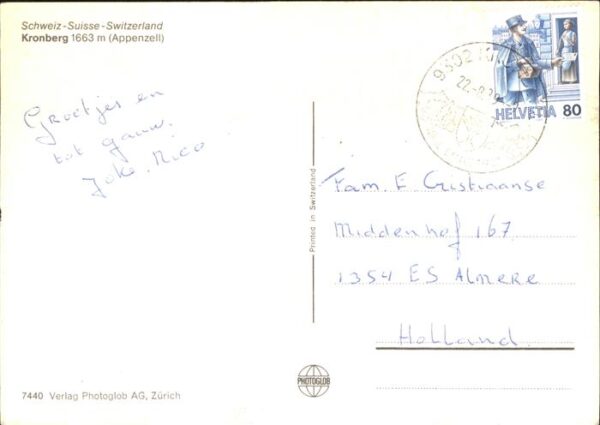 Schweiz-Suisse-Switzerland
Kronberg 1663 m (Appenzell)
Groetjes en
tot gauw.
Joke. Nico
HELVETIA 80
Printed in Switzerland
Fam. E. Cristiaanse
Middenhof 167
1354 ES Almere
Holland.
PHOTOGLOB
7440 Verlag Photoglob AG, Zürich